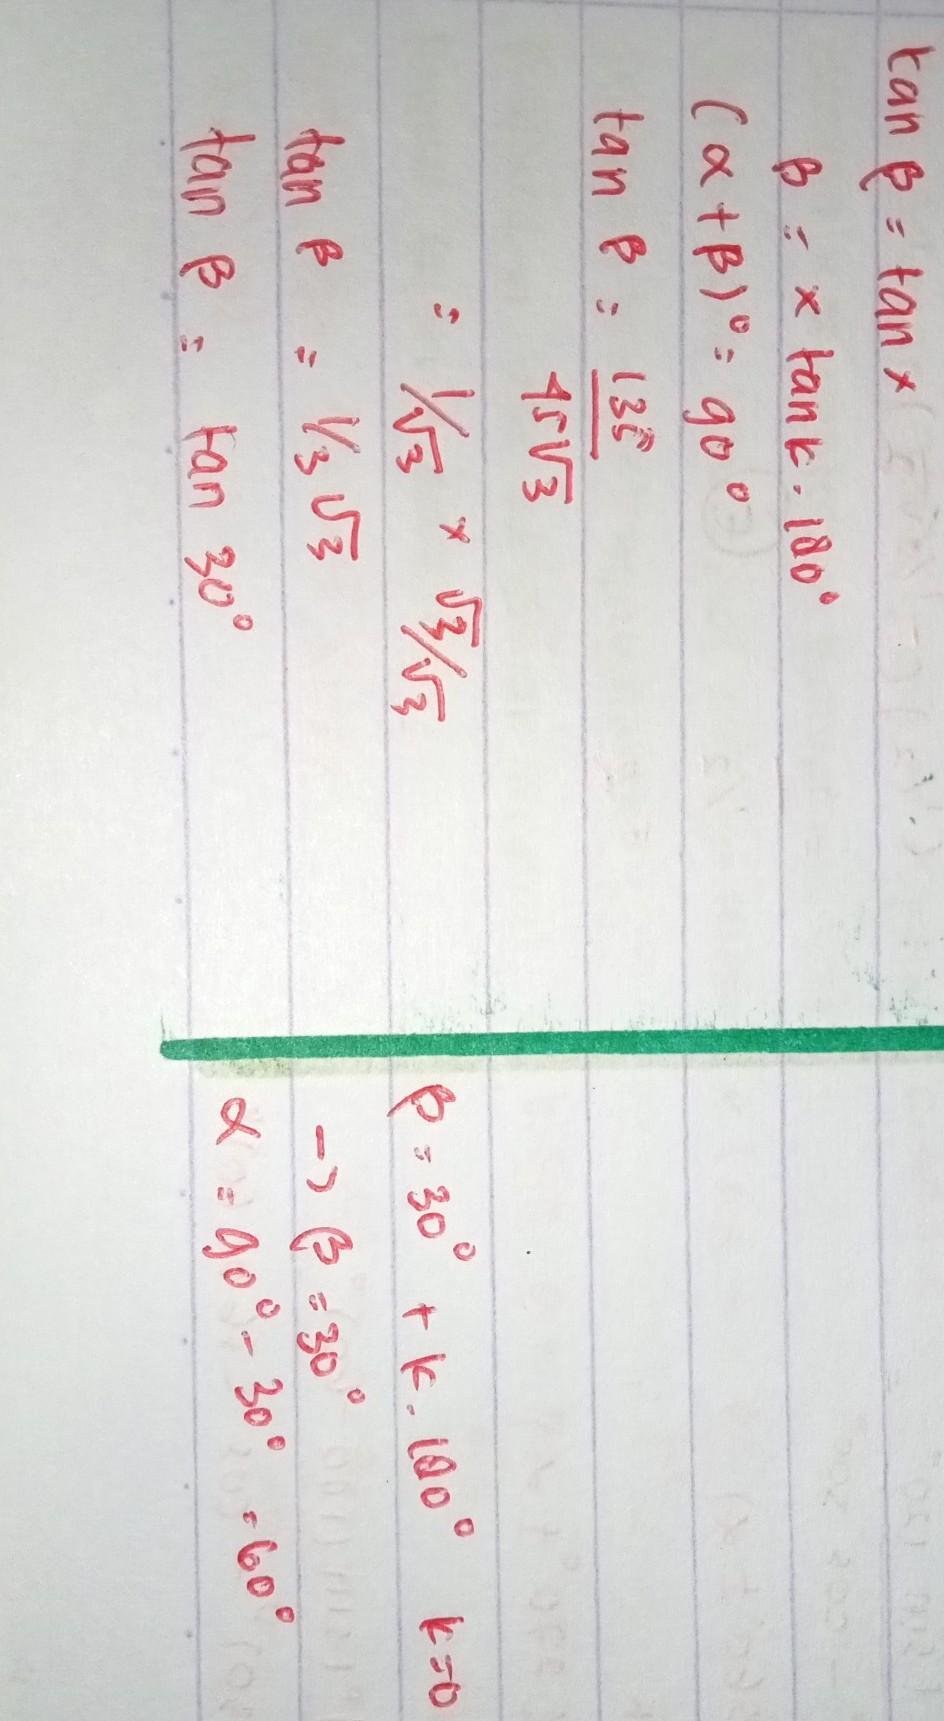 tan β = tan x
β = x tan k . 180°
(α + β)° = 90°
tan β = 135/45√3
= 1/√3 x √3/√3
tan β = 1/3 √3
tan β = tan 30°
β = 30° + k . 180° k=0
→ β = 30°
α = 90° - 30° = 60°